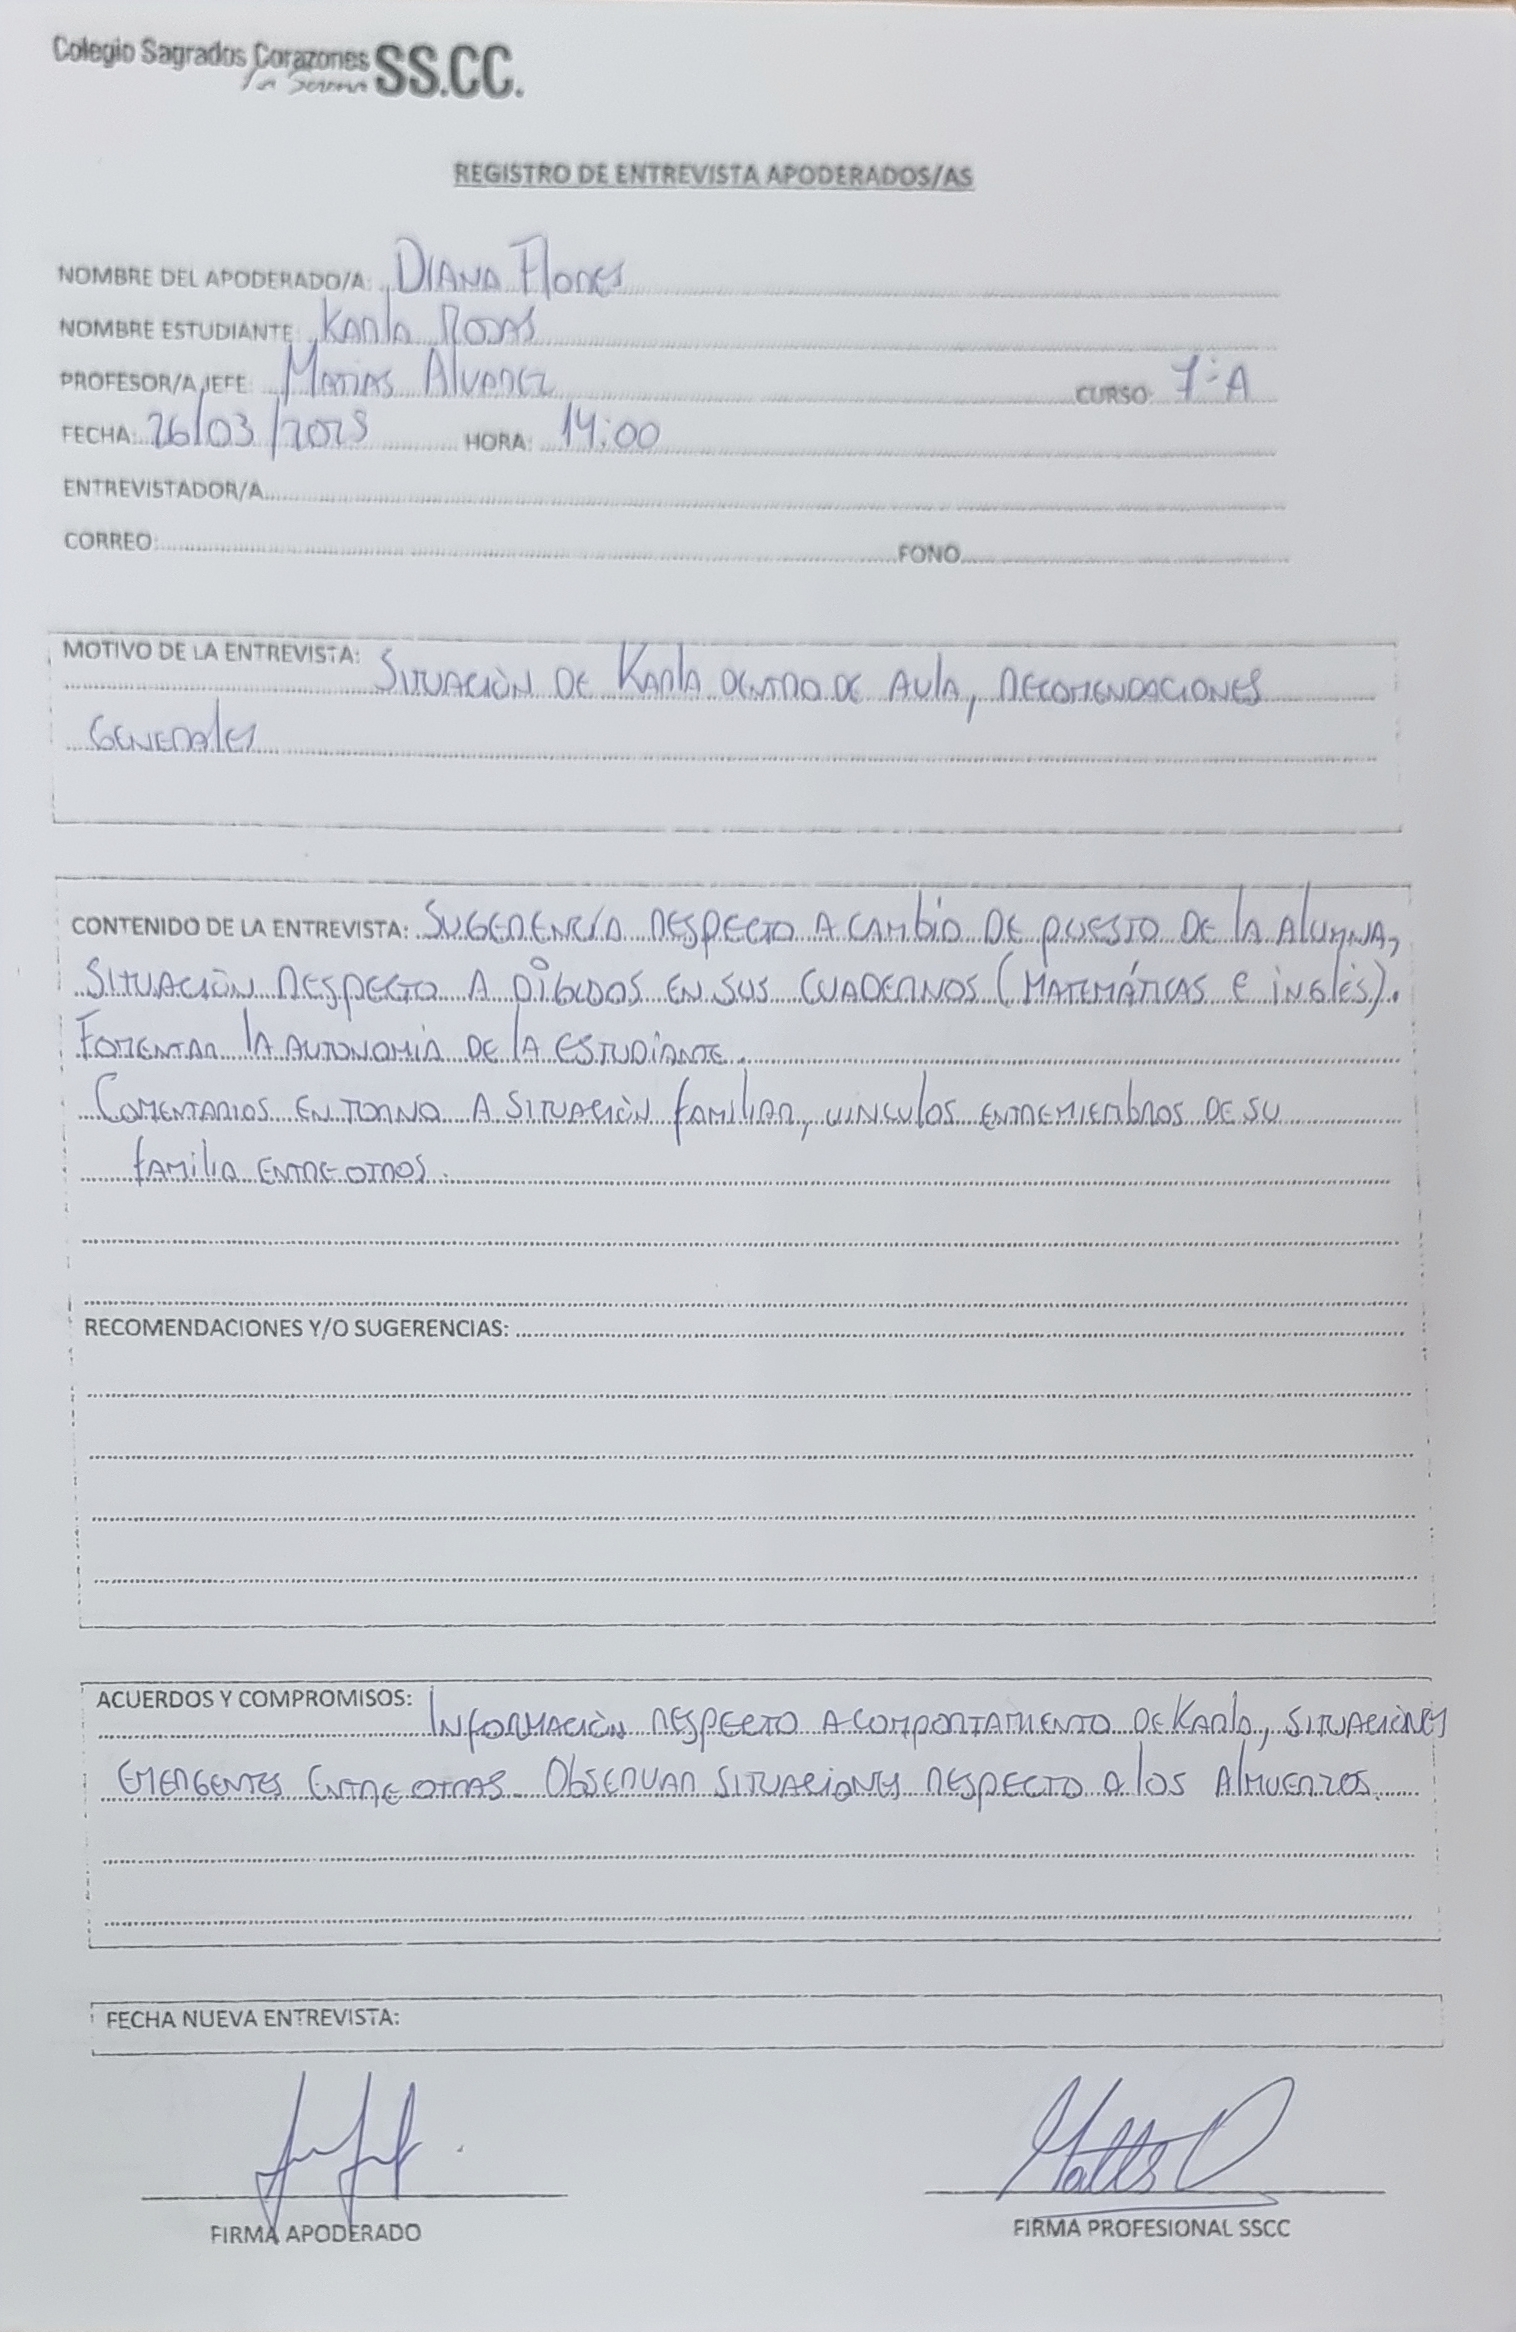 Colegio Sagrados Corazones SS.CC.
La Serena
REGISTRO DE ENTREVISTA APODERADOS/AS
NOMBRE DEL APODERADO/A: DIANA Flores
NOMBRE ESTUDIANTE: Karla ROJAS
PROFESOR/A JEFE: MATIAS AlvAREZ CURSO: 7°A
FECHA: 26/03/2025 HORA: 14:00
ENTREVISTADOR/A
CORREO: FONO
MOTIVO DE LA ENTREVISTA: SITUACIÒN DE KARlA DENTRO DE AulA, RECOMENDACIONES
GENERAlES
CONTENIDO DE LA ENTREVISTA: SUGERENCIA RESPECTO A CAMbIO DE PUESTO DE lA AlUMNA,
SITUACIÒN RESPECTO A DIbUJOS EN SUS CUADERNOS (MATEMÁTICAS e INGlÉS).
FOMENTAR lA AUTONOMIA DE lA ESTUDIANTE.
COMENTARIOS EN TORNO A SITUACIÒN fAMIlIAR, VINCUlOS ENTRE MIEMbROS DE SU
fAMIlIA ENTRE OTROS.
RECOMENDACIONES Y/O SUGERENCIAS:
ACUERDOS Y COMPROMISOS: INfORMACIÒN RESPECTO A COMPORTAMIENTO DE KARlA, SITUACIONES
EMERGENTES ENTRE OTRAS. ObSERVAR SITUACIONES RESPECTO A lOS AlMUERZOS.
FECHA NUEVA ENTREVISTA:
FIRMA APODERADO FIRMA PROFESIONAL SSCC